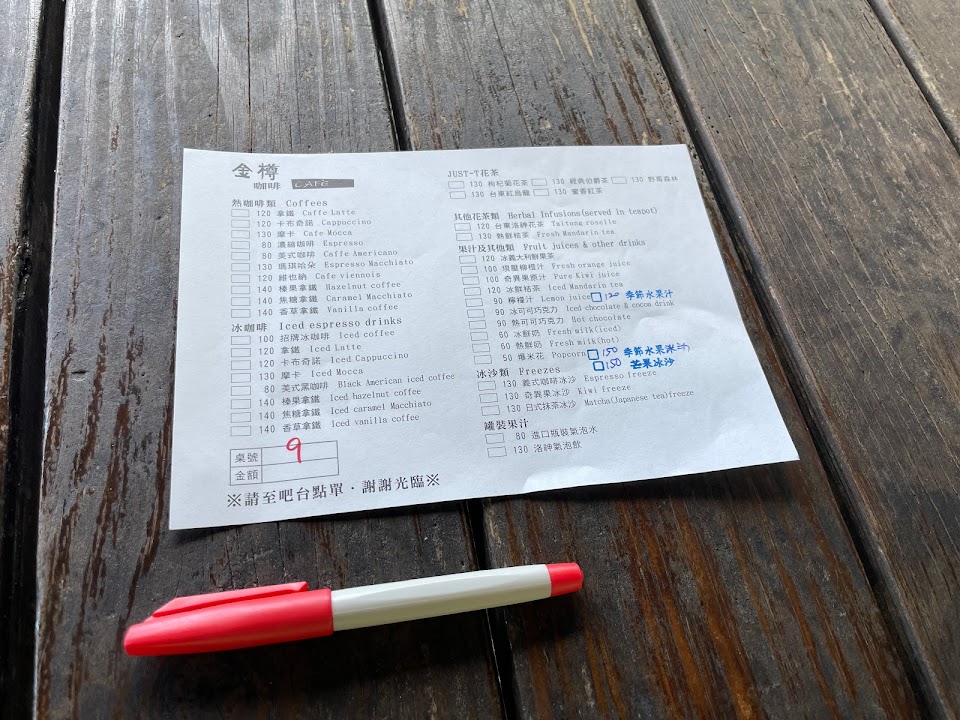 金樽
咖啡 CAFÉ
熱咖啡類 Coffees
120 拿鐵 Caffe Latte
120 卡布奇諾 Cappucino
130 摩卡 Cafe Mocca
80 濃縮咖啡 Espresso
80 美式咖啡 Caffe Americano
130 瑪琪哈朵 Espresso Macchiato
120 維也納 Cafe viennois
140 榛果拿鐵 Hazelnut coffee
140 焦糖拿鐵 Caramel Macchiato
140 香草拿鐵 Vanilla coffee
冰咖啡 Iced espresso drinks
100 招牌冰咖啡 Iced coffee
120 拿鐵 Iced Latte
120 卡布奇諾 Iced Cappucino
130 摩卡 Iced Mocca
80 美式黑咖啡 Black American iced coffee
140 榛果拿鐵 Iced hazelnut coffee
140 焦糖拿鐵 Iced caramel Macchiato
140 香草拿鐵 Iced vanilla coffee
桌號 9
金額
※請至吧台點單．謝謝光臨※
JUST-T花茶
130 枸杞菊花茶 130 經典伯爵茶 130 野莓森林
130 台東紅烏龍 130 蜜香紅茶
其他花茶類 Herbal Infusions(served in teapot)
120 台東洛神花茶 Taitung roselle
130 熱鮮桔茶 Fresh Mandarin tea
果汁及其他類 Fruit juices & other drinks
120 冰義大利鮮果茶
100 現壓柳橙汁 Fresh orange juice
100 奇異果原汁 Pure Kiwi juice
120 冰鮮桔茶 Iced Mandarin tea
90 檸檬汁 Lemon juice 120 季節水果汁
90 冰可可巧克力 Iced chocolate & cocoa drink
90 熱可可巧克力 Hot chocolate
60 冰鮮奶 Fresh milk(iced)
60 熱鮮奶 Fresh milk(hot)
50 爆米花 Popcorn 150 季節水果冰沙
150 芒果冰沙
冰沙類 Freezes
130 義式咖啡冰沙 Espresso freeze
130 奇異果冰沙 Kiwi freeze
130 日式抹茶冰沙 Matcha(Japanese tea)freeze
罐裝果汁
80 進口瓶裝氣泡水
130 洛神氣泡飲